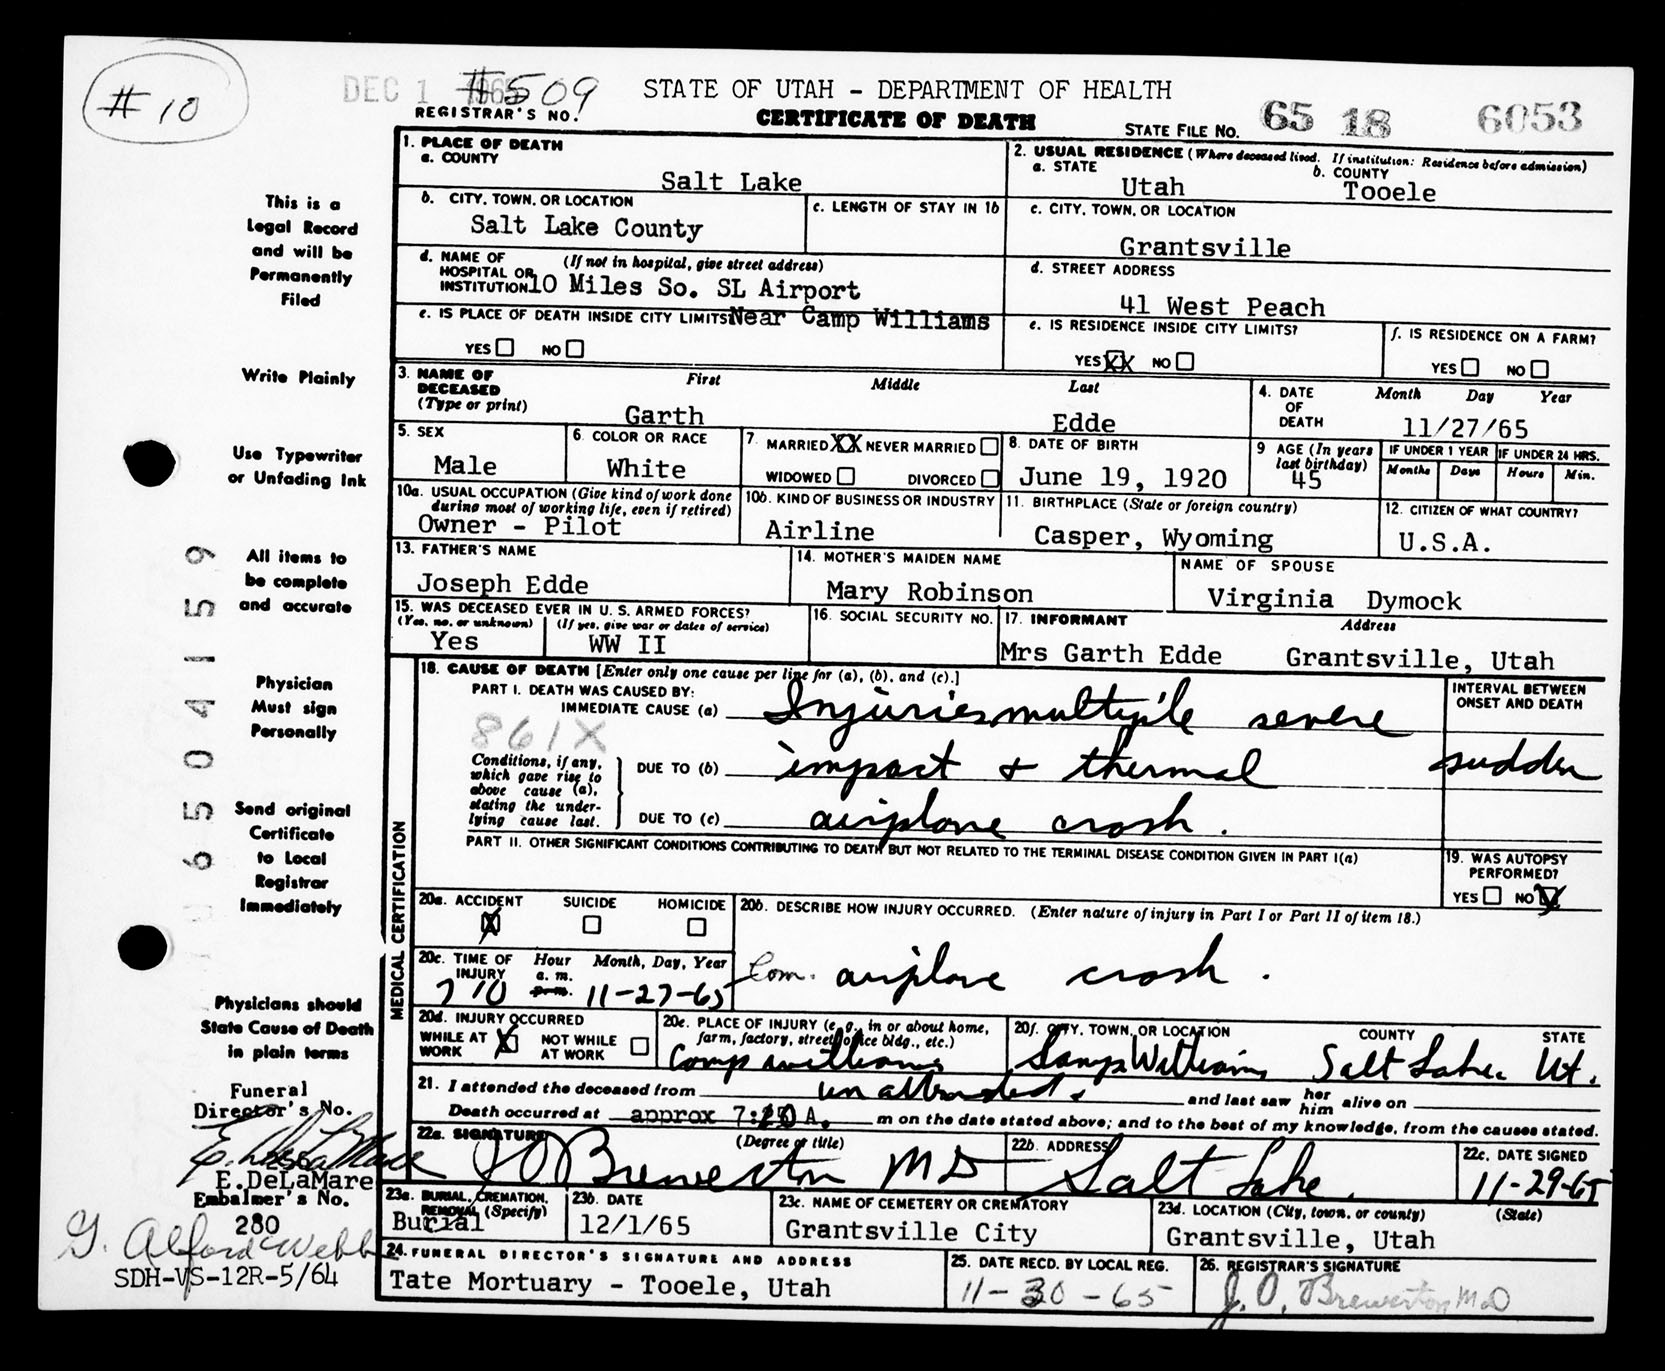 #10
DEC 1 1965
#509
STATE OF UTAH - DEPARTMENT OF HEALTH
REGISTRAR'S NO.
CERTIFICATE OF DEATH
STATE FILE NO. 65 18 6053
This is a
Legal Record
and will be
Permanently
Filed
Write Plainly
Use Typewriter
or Unfading Ink
All items to
be complete
and accurate
Physician
Must sign
Personally
Send original
Certificate
to Local
Registrar
Immediately
Physicians should
State Cause of Death
in plain terms
Funeral
Director's No.
E. DeLaMare
256
E.DeLaMare
Embalmer's No.
280
G. Alford Webb
SDH-VS-12R-5/64
65041559
1. PLACE OF DEATH
a. COUNTY
Salt Lake
2. USUAL RESIDENCE (Where deceased lived. If institution: Residence before admission)
a. STATE
Utah
b. COUNTY
Tooele
b. CITY, TOWN, OR LOCATION
Salt Lake County
c. LENGTH OF STAY IN 1b
c. CITY, TOWN, OR LOCATION
Grantsville
d. NAME OF HOSPITAL OR INSTITUTION (If not in hospital, give street address)
10 Miles So. SL Airport
d. STREET ADDRESS
41 West Peach
e. IS PLACE OF DEATH INSIDE CITY LIMITS?
Near Camp Williams
YES NO
e. IS RESIDENCE INSIDE CITY LIMITS?
YES XX NO
f. IS RESIDENCE ON A FARM?
YES NO
3. NAME OF DECEASED (Type or print)
First Middle Last
Garth Edde
4. DATE OF DEATH
Month Day Year
11/27/65
5. SEX
Male
6. COLOR OR RACE
White
7. MARRIED XX NEVER MARRIED
WIDOWED DIVORCED
8. DATE OF BIRTH
June 19, 1920
9 AGE (In years last birthday)
45
IF UNDER 1 YEAR
Months Days
IF UNDER 24 HRS.
Hours Min.
10a. USUAL OCCUPATION (Give kind of work done during most of working life, even if retired)
Owner - Pilot
10b. KIND OF BUSINESS OR INDUSTRY
Airline
11. BIRTHPLACE (State or foreign country)
Casper, Wyoming
12. CITIZEN OF WHAT COUNTRY?
U.S.A.
13. FATHER'S NAME
Joseph Edde
14. MOTHER'S MAIDEN NAME
Mary Robinson
NAME OF SPOUSE
Virginia Dymock
15. WAS DECEASED EVER IN U. S. ARMED FORCES?
(Yes, no, or unknown) (If yes, give war or dates of service)
Yes WW II
16. SOCIAL SECURITY NO.
17. INFORMANT Address
Mrs Garth Edde Grantsville, Utah
MEDICAL CERTIFICATION
18. CAUSE OF DEATH [Enter only one cause per line for (a), (b), and (c).]
PART I. DEATH WAS CAUSED BY:
IMMEDIATE CAUSE (a) Injuries multiple severe
INTERVAL BETWEEN ONSET AND DEATH
861X
Conditions, if any, which gave rise to above cause (a), stating the underlying cause last.
DUE TO (b) impact & thermal
sudden
DUE TO (c) airplane crash.
PART II. OTHER SIGNIFICANT CONDITIONS CONTRIBUTING TO DEATH BUT NOT RELATED TO THE TERMINAL DISEASE CONDITION GIVEN IN PART I(a)
19. WAS AUTOPSY PERFORMED?
YES NO X
20a. ACCIDENT SUICIDE HOMICIDE
X
20b. DESCRIBE HOW INJURY OCCURRED. (Enter nature of injury in Part I or Part II of item 18.)
Com. airplane crash.
20c. TIME OF INJURY
Hour a. m. p.m. Month, Day, Year
7 10 11-27-65
20d. INJURY OCCURRED
WHILE AT WORK X NOT WHILE AT WORK
20e. PLACE OF INJURY (e. g., in or about home, farm, factory, street, office bldg., etc.)
Camp williams
20f. CITY, TOWN, OR LOCATION COUNTY STATE
Camp Williams Salt Lake Ut.
21. I attended the deceased from unattended. and last saw her him alive on
Death occurred at approx 7:10 A. m on the date stated above; and to the best of my knowledge, from the causes stated.
22a. SIGNATURE (Degree or title)
J O Brewerton M D
22b. ADDRESS
Salt Lake.
22c. DATE SIGNED
11-29-65
23a. BURIAL, CREMATION, REMOVAL (Specify)
Burial
23b. DATE
12/1/65
23c. NAME OF CEMETERY OR CREMATORY
Grantsville City
23d. LOCATION (City, town, or county) (State)
Grantsville, Utah
24. FUNERAL DIRECTOR'S SIGNATURE AND ADDRESS
Tate Mortuary - Tooele, Utah
25. DATE RECD. BY LOCAL REG.
11-30-65
26. REGISTRAR'S SIGNATURE
J. O. Brewerton MD